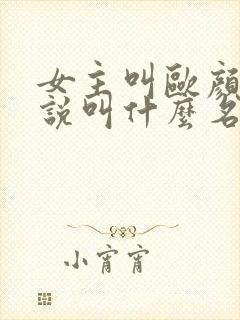 女主叫歐顏
說叫什麼名
小宵宵